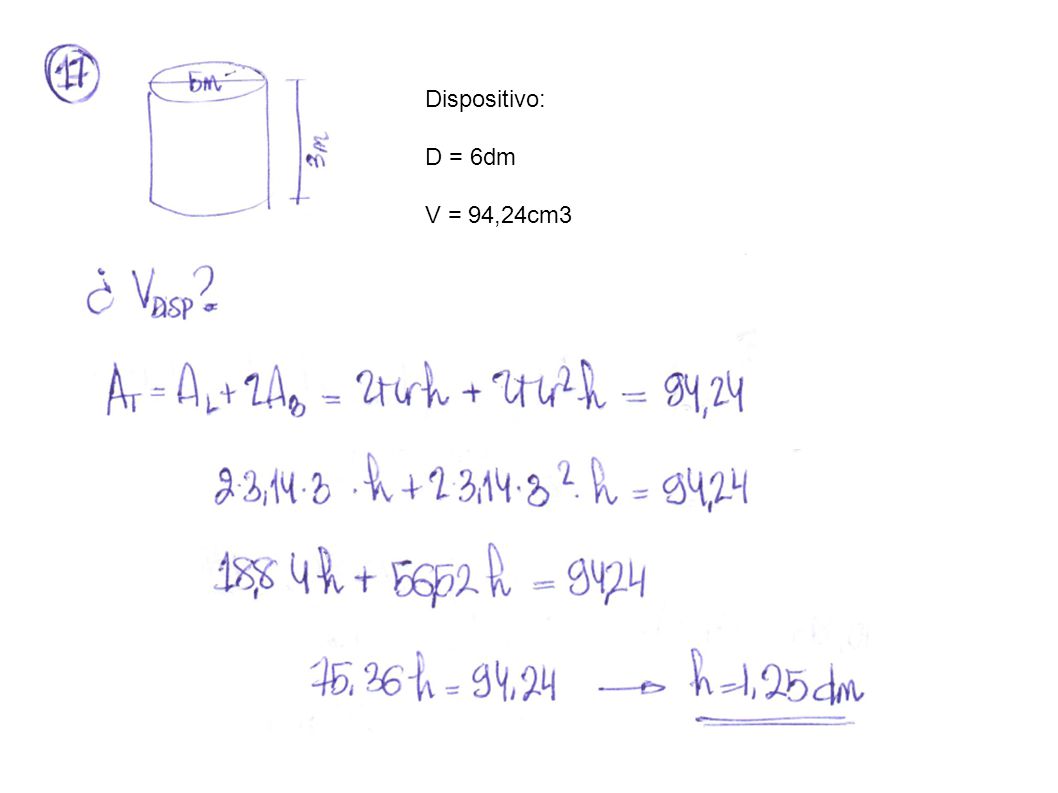 17
5m
3m
Dispositivo:
D = 6dm
V = 94,24cm3
¿ V_DISP?
A_T = A_L + 2A_B = 2πrh + 2πr²h = 94,24
2·3,14·3 · h + 2·3,14·3² · h = 94,24
18,84h + 56,52h = 94,24
75,36h = 94,24 → h = 1,25 dm